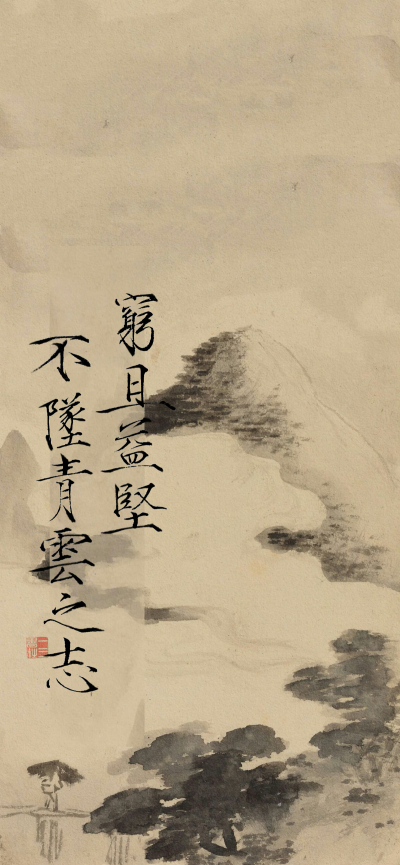 窮且益堅
不墜青雲之志